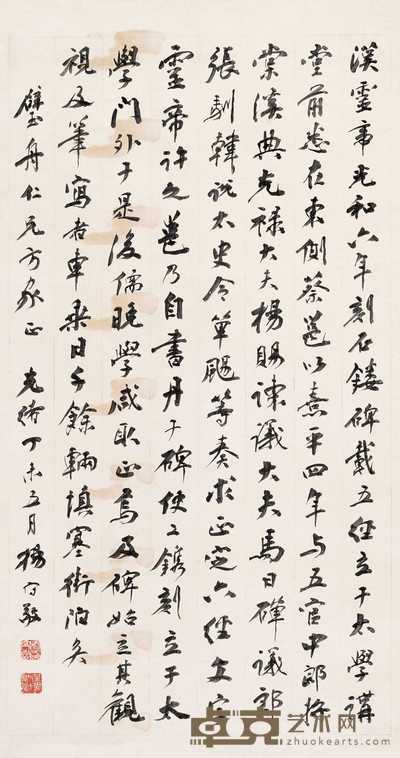 漢靈帝光和六年刻石鏤碑載五經立于太學講
堂前悉在東側蔡邕以熹平四年與五官中郎將
棠溪典光祿大夫楊賜諫議大夫馬日磾議郎
張馴韓說太史令單颺等奏求正定六經文字
靈帝許之邕乃自書丹于碑使工鐫刻立于太
學門外于是後儒晚學咸取正焉及碑始立其觀
視及筆寫者車乘日千餘輛填塞街陌矣
璧舟仁兄方家正 光緒丁未五月楊守敬
卓克艺术网
zhuokearts.com